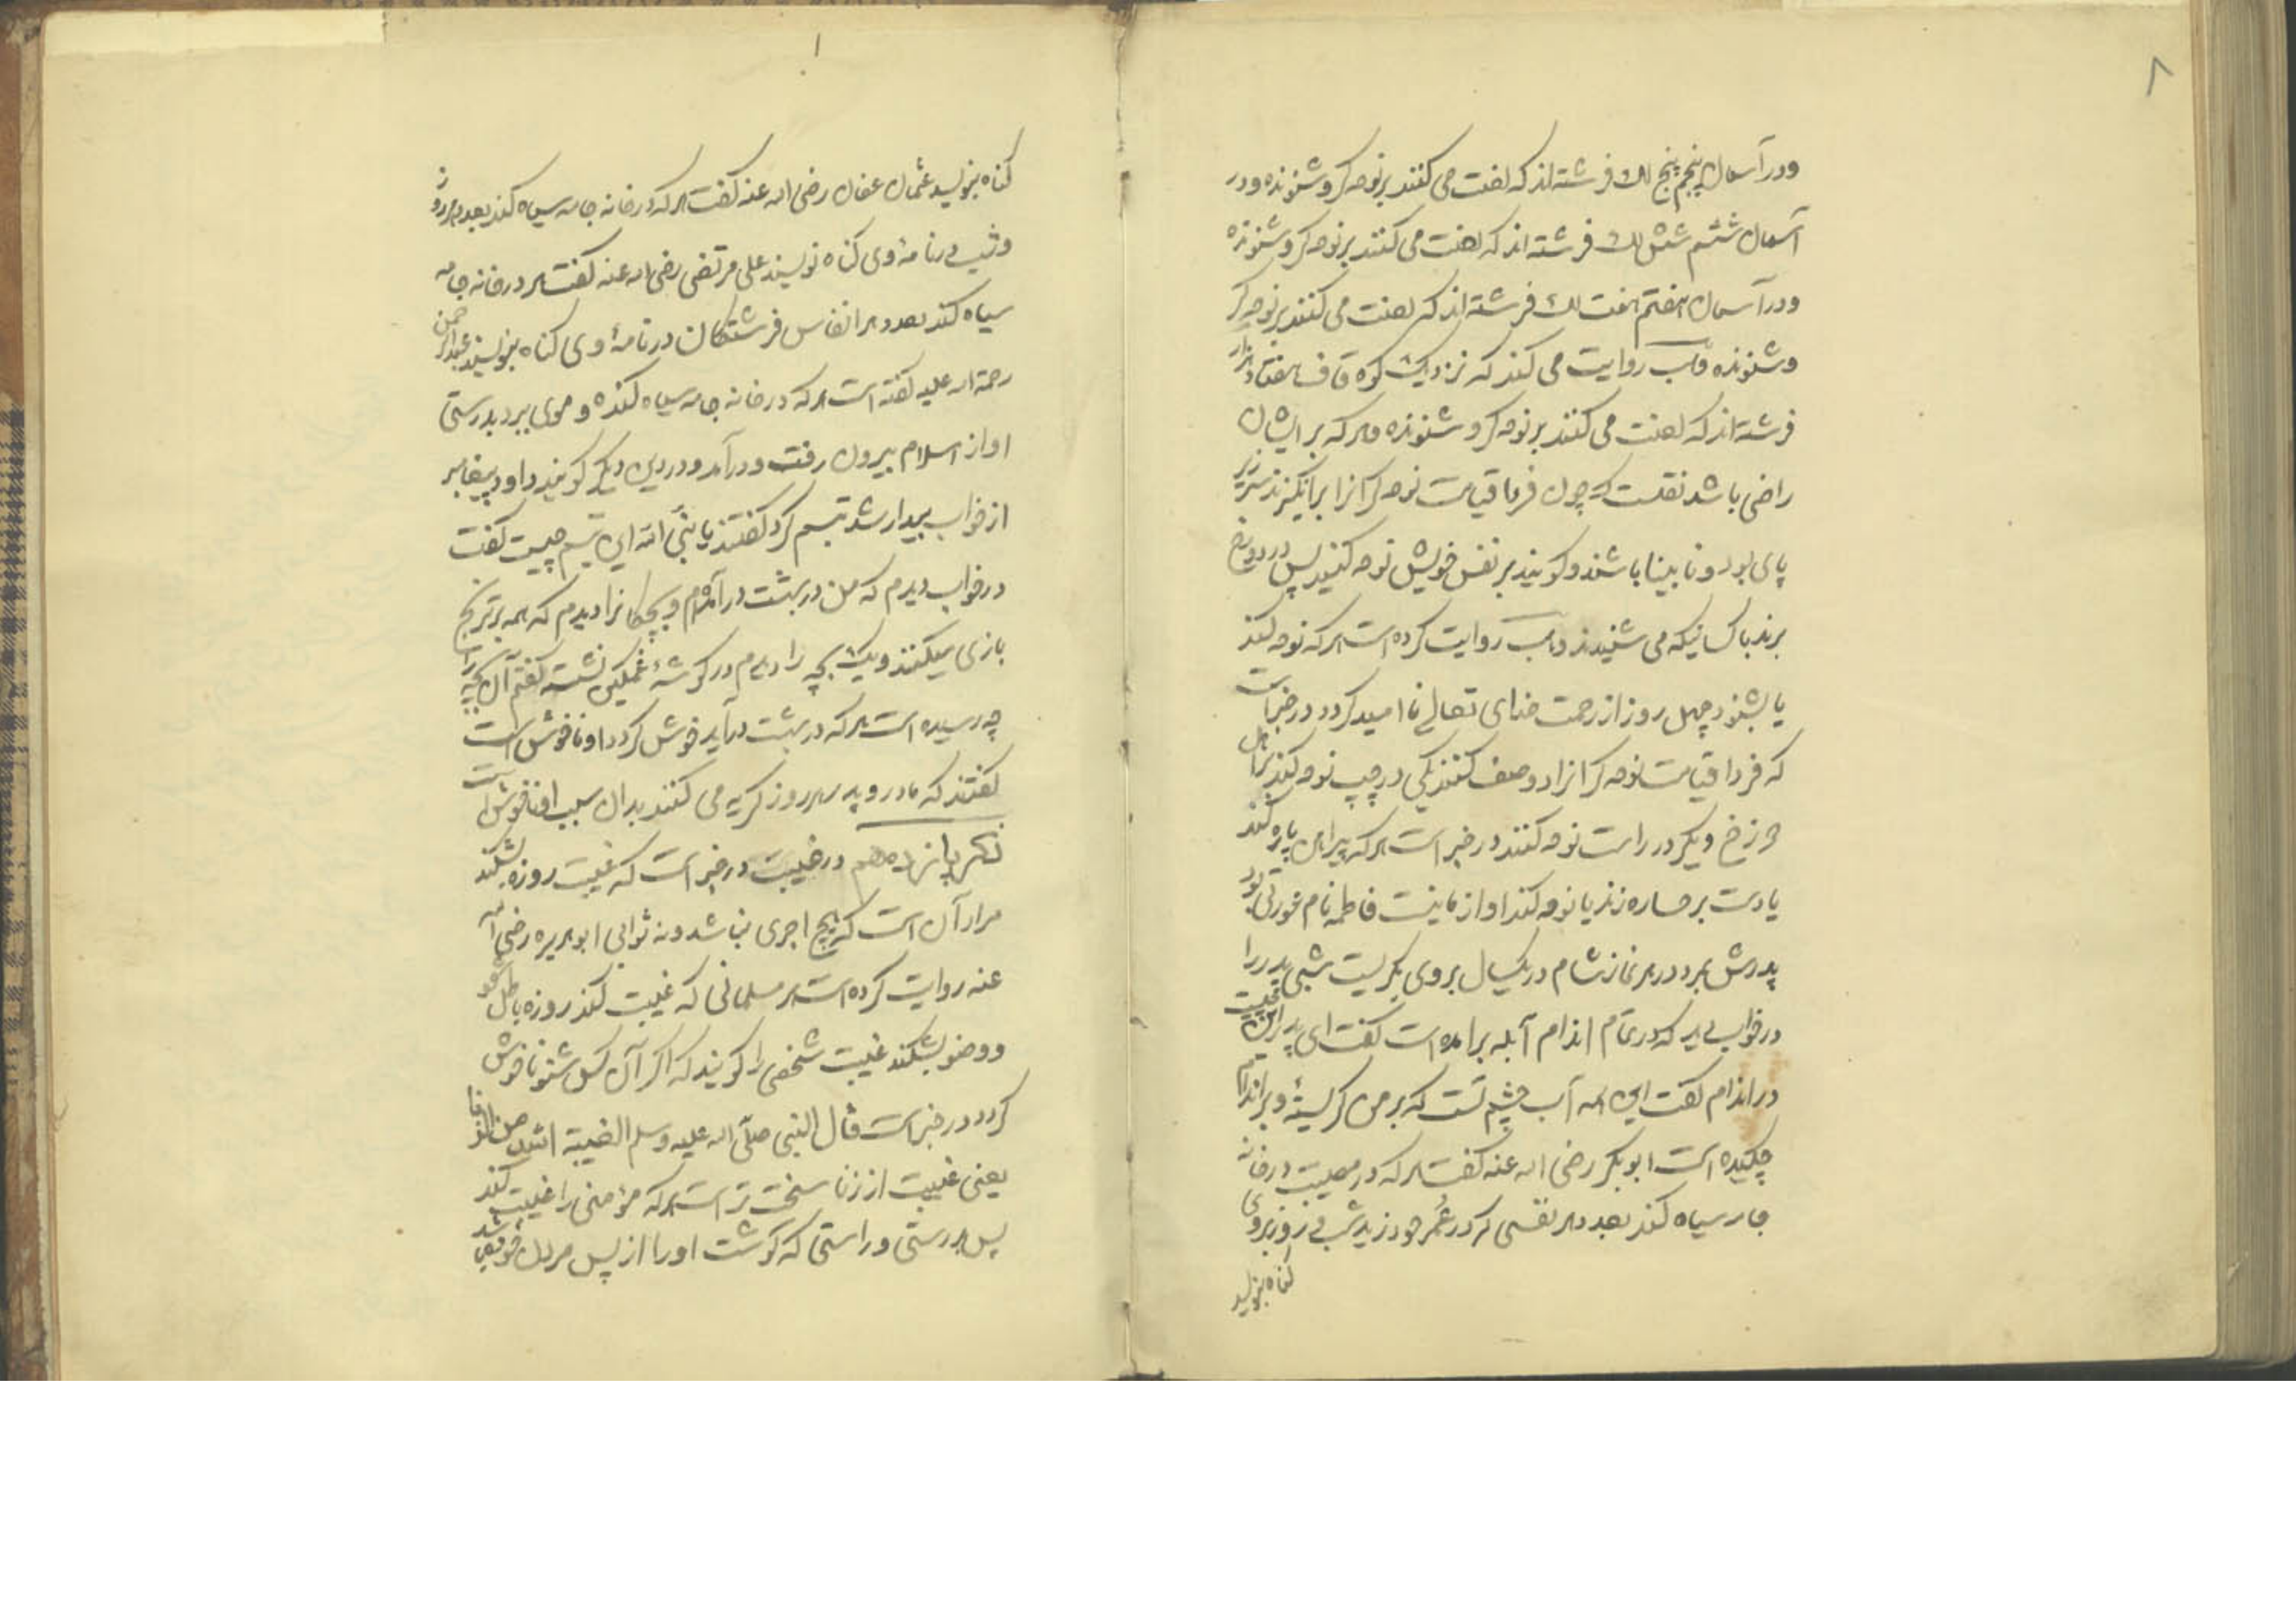 ۸
ودر آسمان پنجم پنج لک فرشته اند که لعنت می کنند بر نوحه گر و شنونده ودر
آسمان ششم شش لک فرشته اند که لعنت می کنند بر نوحه گر و شنونده
ودر آسمان هفتم هفت لک فرشته اند که لعنت می کنند بر نوحه گر
وشنونده روایت می کند که نزدیک کوه قاف هفتاد هزار
فرشته اند که لعنت می کنند بر نوحه گر و شنونده و هر که بر ایشان
راضی باشد نقلست که چون فردا قیامت نوحه گرانرا برانگیزند
پای بود و نابینا باشند و گویند بر نفس خویش نوحه کنید پس در دوزخ
برند با کسانیکه می شنیدند وهب روایت کرده است هر که نوحه کند
یا بشنود چهل روز از رحمت خدای تعالی نا امید گردد در خبر است
که فردا قیامت نوحه گرانرا دو صف کنند یکی در چپ نوحه کند بر اهل
دوزخ و یکی در راست نوحه کنند در خبر است هر که پیراهن پاره کند
یا دست بر رخساره زند یا نوحه کند او از ما نیست فاطمه نام عورتی بود
پدرش بمرد در هر نماز شام در یکسال بر وی بگریست شبی پدر را
در خواب دید که در تمام اندام آبله بر آمده است گفت ای پدر این چیست
در اندام گفت این همه آب چشم تست که بر من گریستهٔ و بر اندام
چکیده است ابوبکر رضی اله عنه گفت هر که در مصیبت در خانه
جامه سیاه کند بعدد هر نفسی که در عمر خود زید شب و روز بر وی
گناه بنویسند
۱
گناه بنویسند عثمان عفان رضی اله عنه گفت هر که در خانه جامه سیاه کند بعدد هر روز
وشبی در نامهٔ وی گناه نویسند علی مرتضی رضی اله عنه گفت هر در خانه جامه
سیاه کند بعدد هر انفاس فرشتگان در نامهٔ وی گناه بنویسند عبد الرحمن
رحمة اله علیه گفته است هر که در خانه جامه سیاه کنده و موی ببرد بدرستی
او از اسلام بیرون رفت و در آمد و در دین دیگر گویند داود پیغامبر
از خواب بیدار شد تبسم کرد گفتند یا نبی الله این تبسم چیست گفت
در خواب دیدم که من در بهشت در آمدم و بچگانرا دیدم که همه بر ترنج
بازی میکنند و یک بچه را دیدم در گوشهٔ غمگین نشسته گفتم آن بچه را
چه رسیده است هر که در بهشت در آید خوش گردد او ناخوش است
گفتند که مادر و پدر هر روز گریه می کنند بدان سبب او ناخوش است
ذکر پانزدهم در غیبت در خبر است که غیبت روزه بشکند
مراد آن است که هیچ اجری نباشد و نه ثوابی ابو هریره رضی اله
عنه روایت کرده است هر مسلمانی که غیبت کند روزه باطل شود
و وضو بشکند غیبت شخصی را گویند که اگر آن کس شنود ناخوش
گردد در خبر است قال النبی صلی اله علیه وسلم الغیبة اشد من الزنا
یعنی غیبت از زنا سخت تر است هر که مؤمنی را غیبت کند
پس بدرستی و راستی که گوشت او را از پس مردن خورده باشد